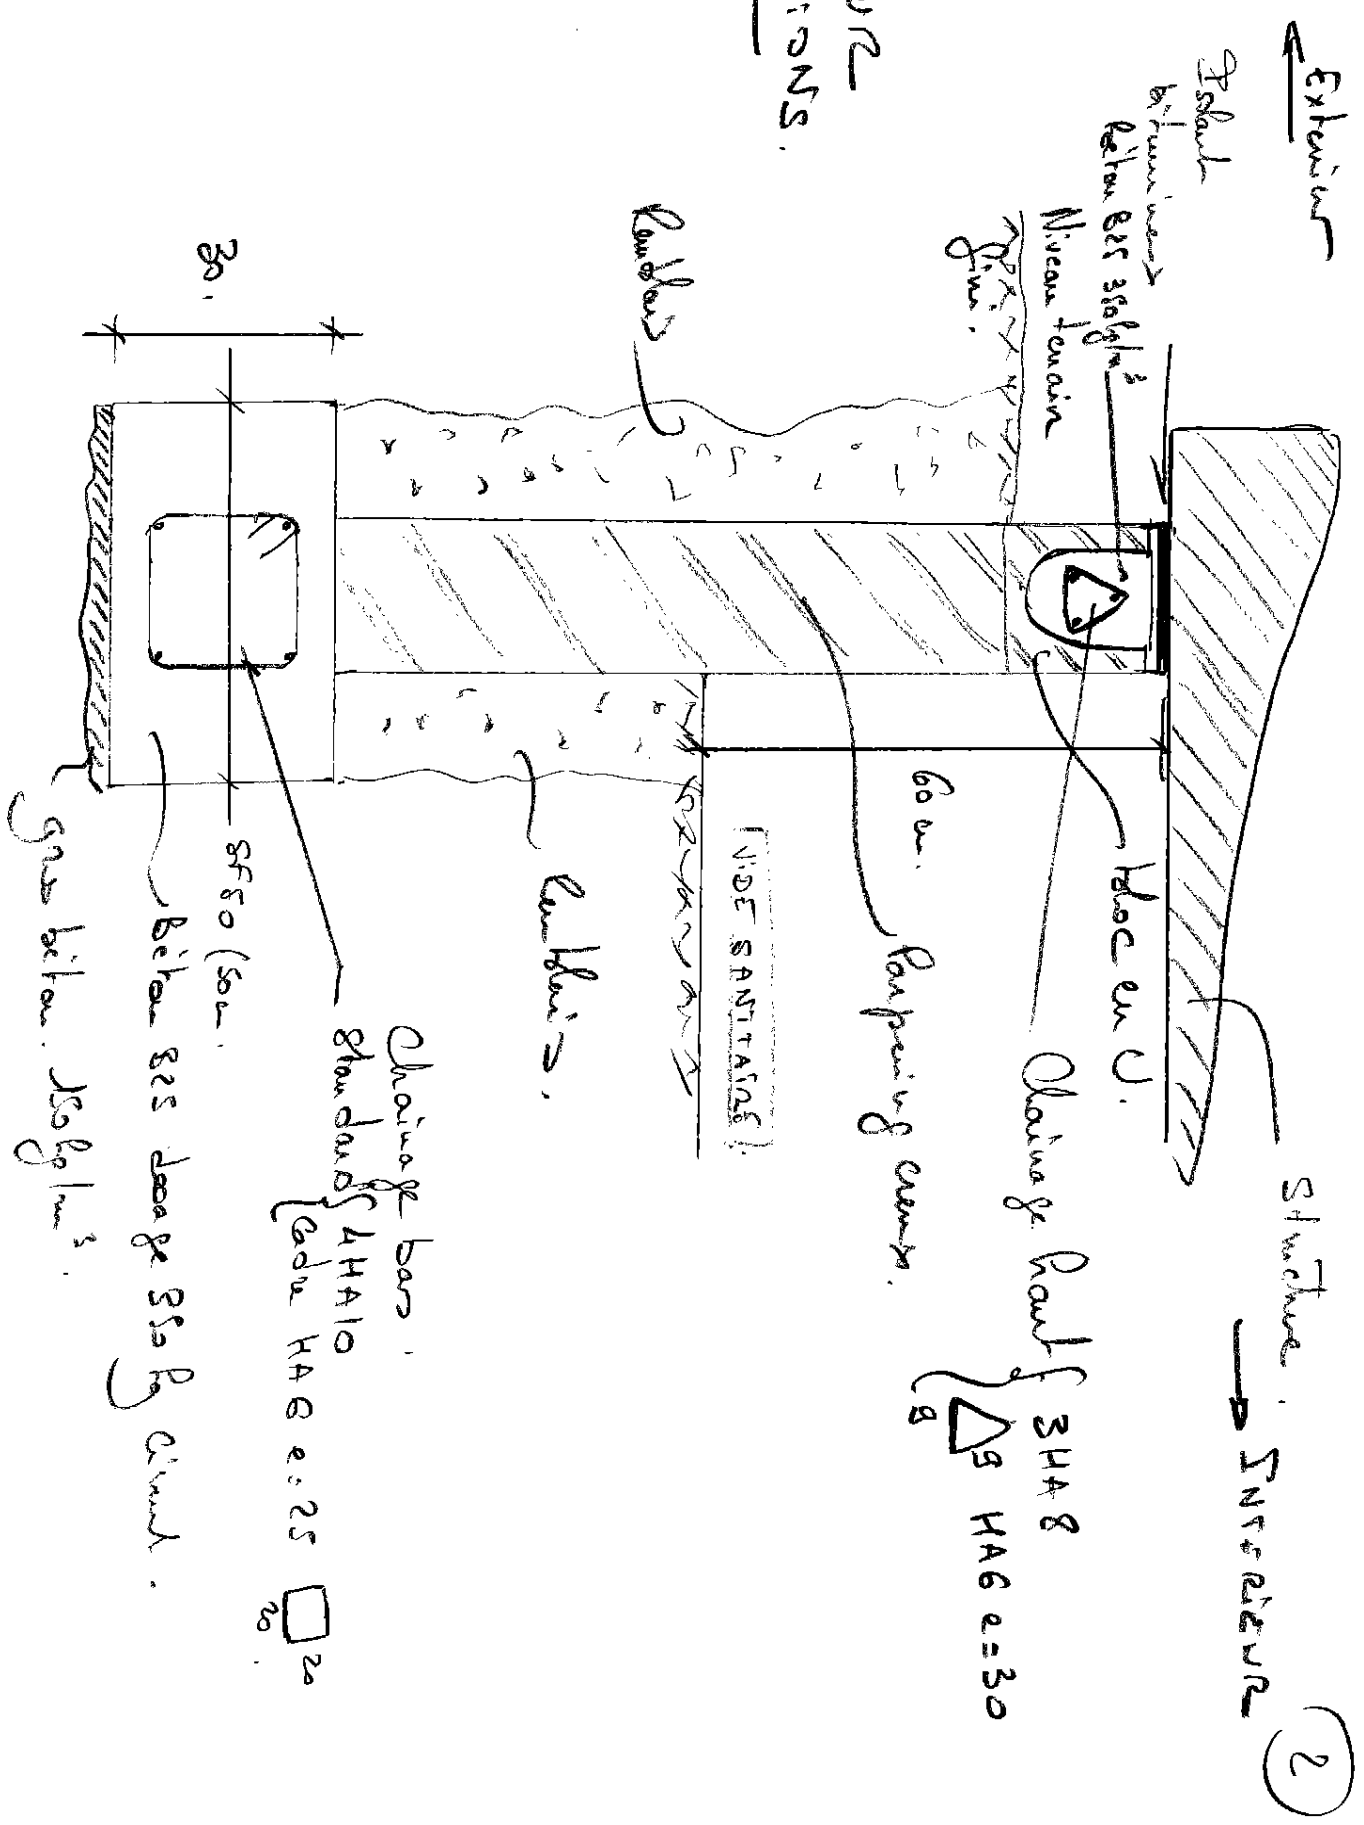 UR
IONS.
Extérieur
INTERIEUR
2
Structure.
Isolant
bitumineux
béton B25 350kg/m³
Niveau terrain
fini.
bloc en U.
Chainage haut { 3HA8
9 9 HA6 e=30
60 cm.
Parpaing creux.
[VIDE SANITAIRE].
Remblais
Remblais.
30.
Chainage bas.
standard { 4HA10
Cadre HA6 e=25 20 20.
SF50 (50cm.
Béton B25 dosage 350kg ciment.
gros béton. 150kg/m³.